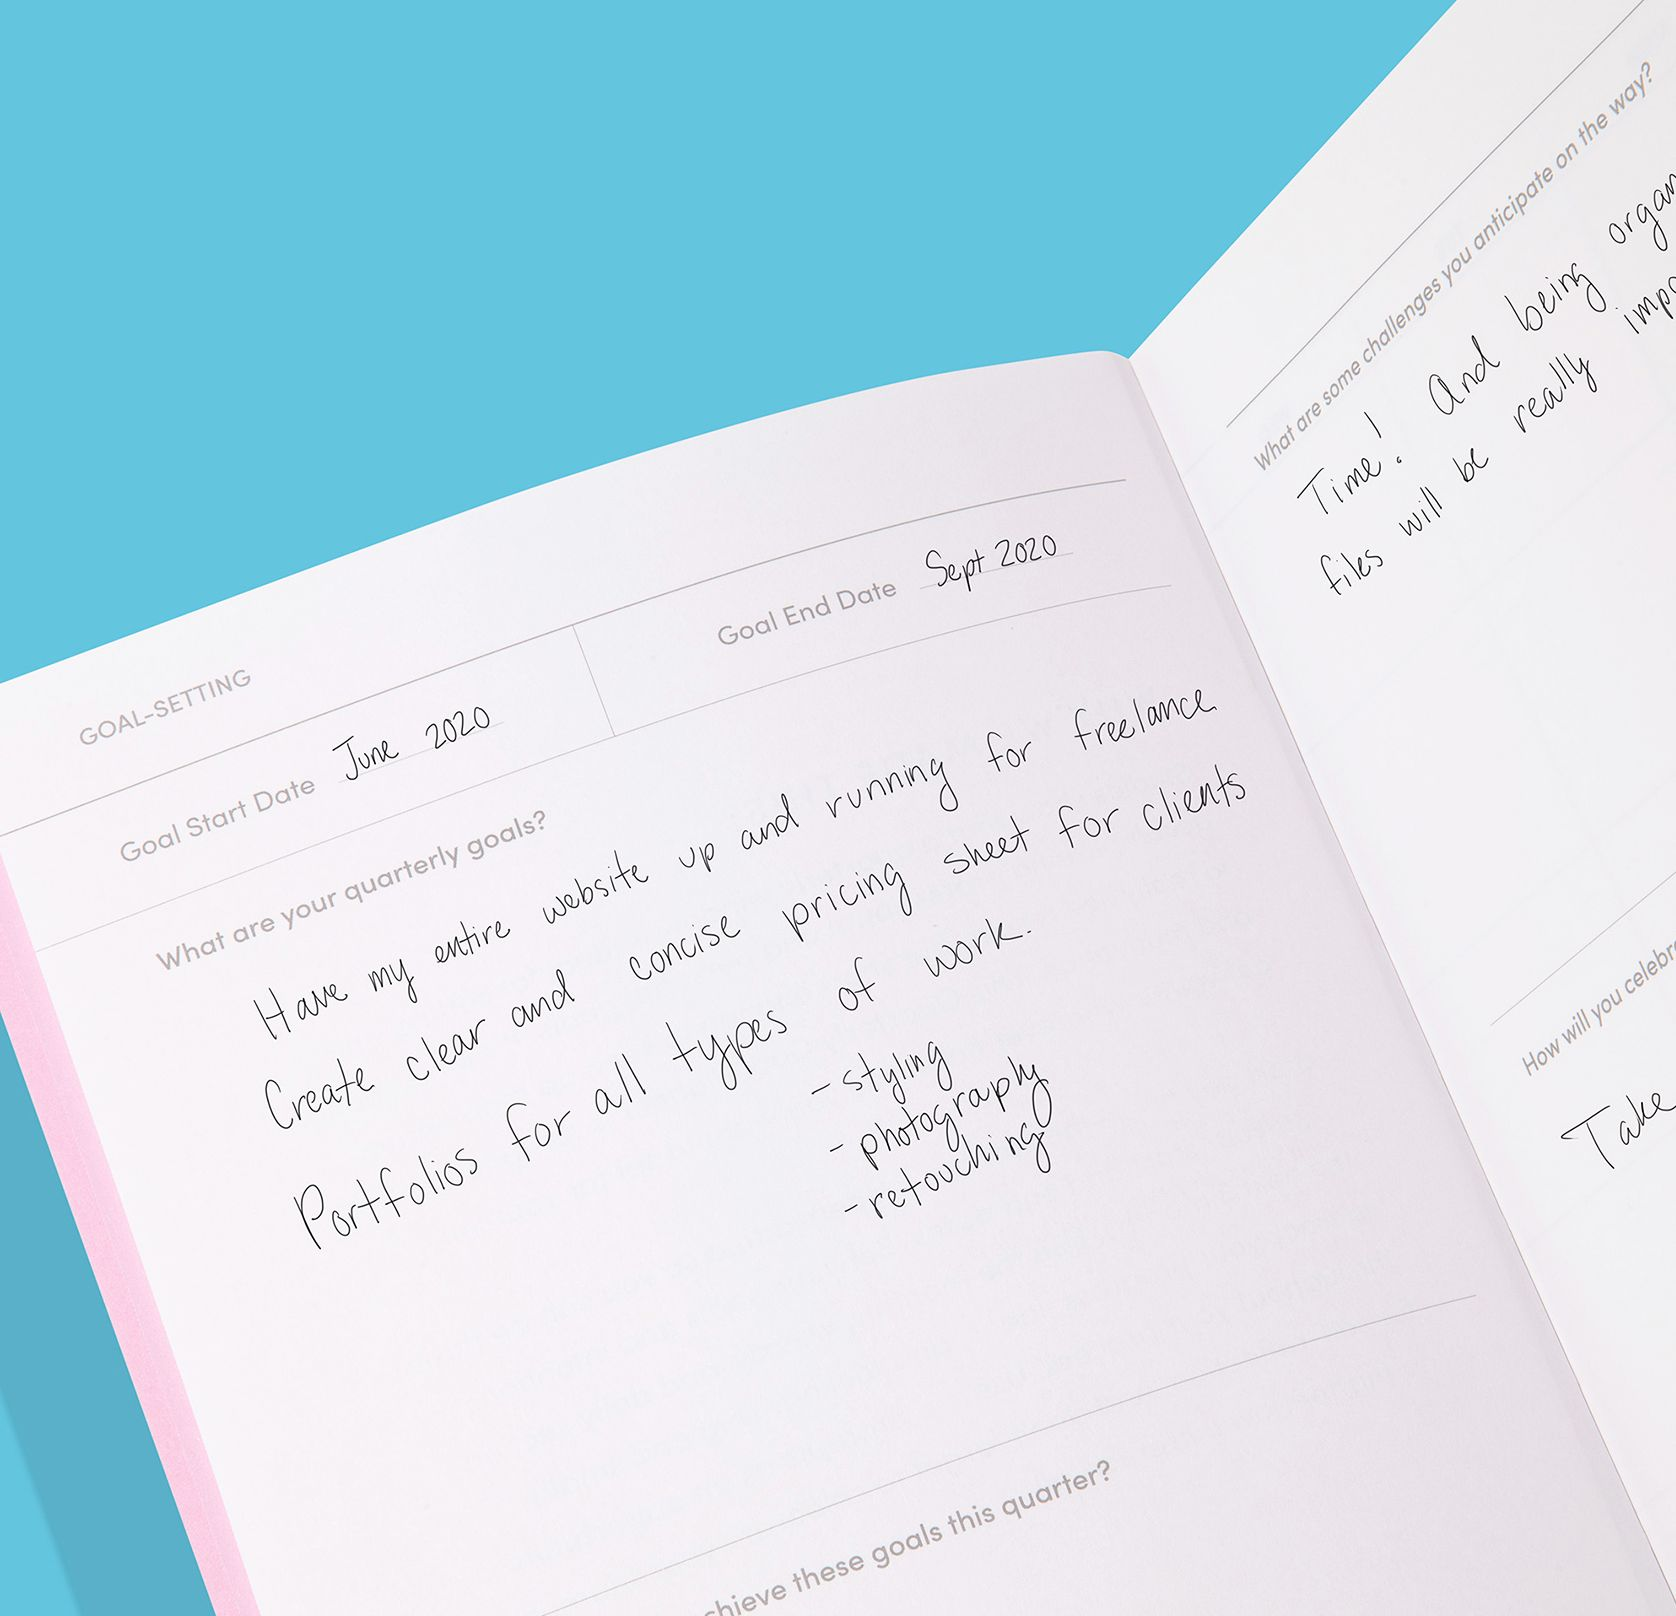 GOAL-SETTING
Goal Start Date June 2020
Goal End Date Sept 2020
What are your quarterly goals?
Have my entire website up and running for freelance
Create clear and concise pricing sheet for clients
Portfolios for all types of work.
- styling
- photography
- retouching
these goals this quarter?
What are some challenges you anticipate on the way?
Time! And being
files will be really
How will you
Take